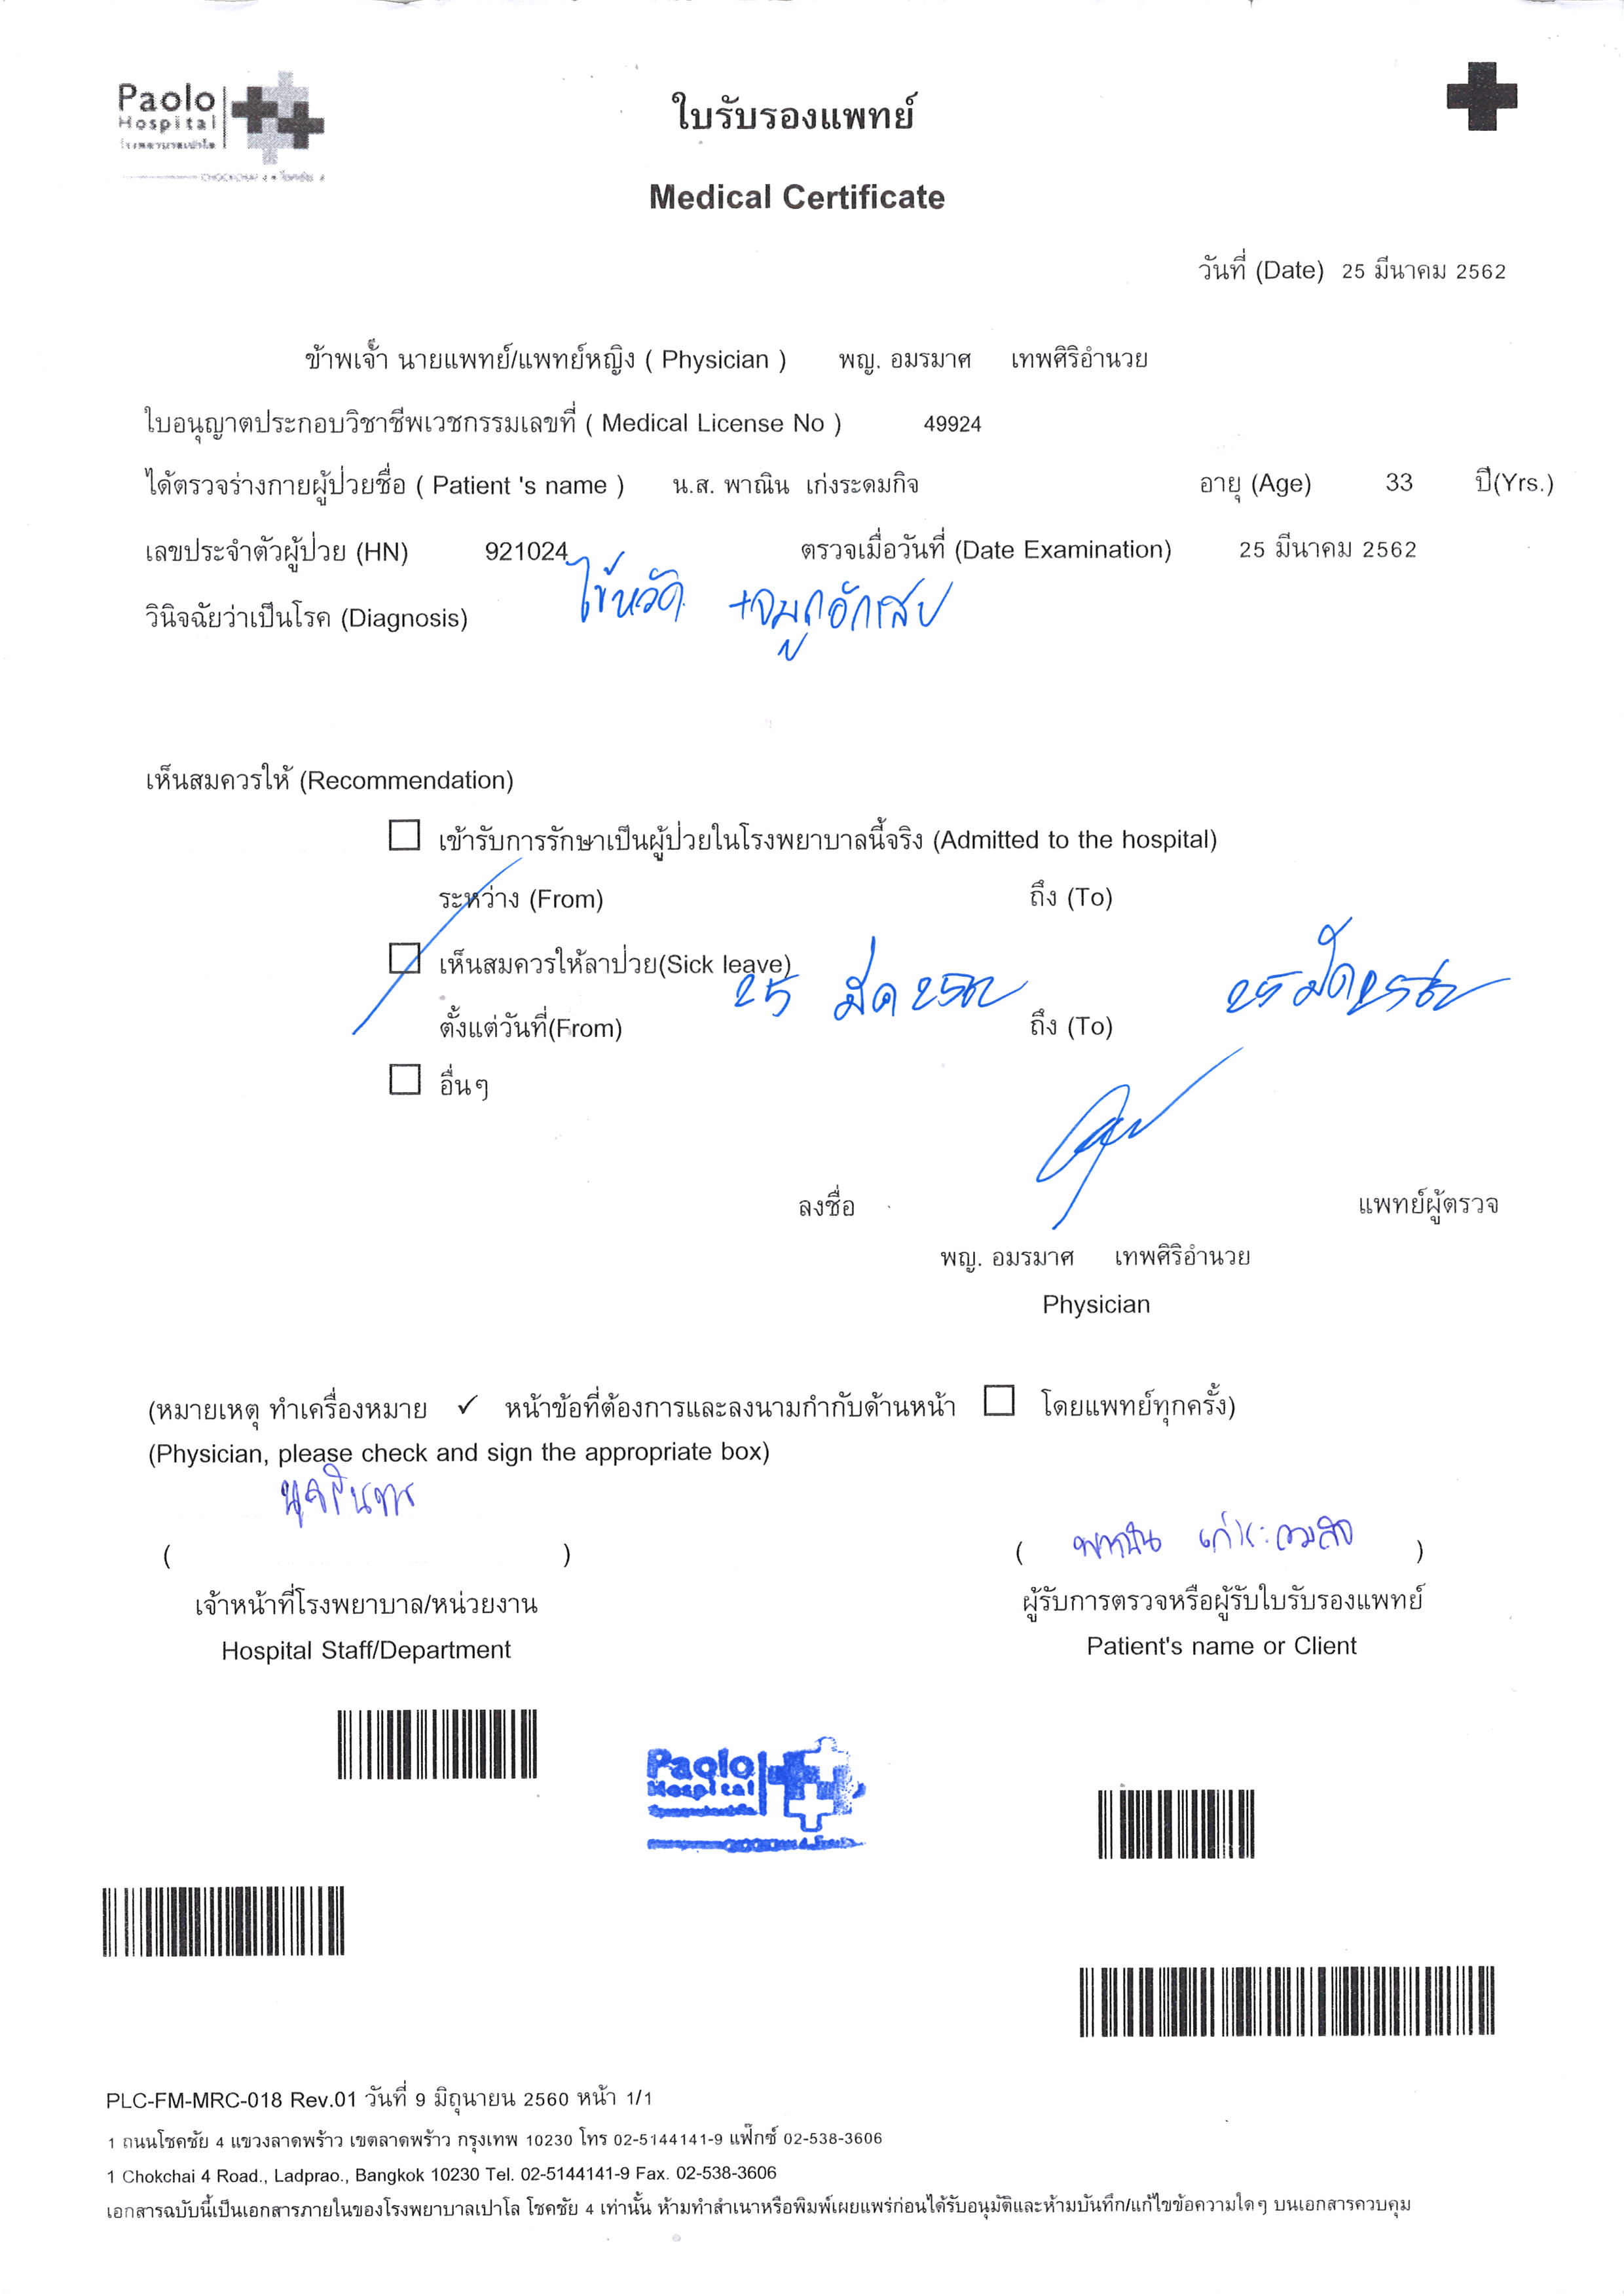 Paolo
Hospital
โรงพยาบาลเปาโล
CHOKCHAI 4 • โชคชัย 4
ใบรับรองแพทย์
Medical Certificate
วันที่ (Date) 25 มีนาคม 2562
ข้าพเจ้า นายแพทย์/แพทย์หญิง ( Physician ) พญ. อมรมาศ เทพศิริอำนวย
ใบอนุญาตประกอบวิชาชีพเวชกรรมเลขที่ ( Medical License No ) 49924
ได้ตรวจร่างกายผู้ป่วยชื่อ ( Patient 's name ) น.ส. พาณิน เก่งระดมกิจ อายุ (Age) 33 ปี(Yrs.)
เลขประจำตัวผู้ป่วย (HN) 921024 ตรวจเมื่อวันที่ (Date Examination) 25 มีนาคม 2562
วินิจฉัยว่าเป็นโรค (Diagnosis) ไข้หวัด +จมูกอักเสบ
เห็นสมควรให้ (Recommendation)
เข้ารับการรักษาเป็นผู้ป่วยในโรงพยาบาลนี้จริง (Admitted to the hospital)
ระหว่าง (From) ถึง (To)
เห็นสมควรให้ลาป่วย(Sick leave)
ตั้งแต่วันที่(From) 25 มีค 2562 ถึง (To) 25 มีค 2562
อื่นๆ
ลงชื่อ แพทย์ผู้ตรวจ
พญ. อมรมาศ เทพศิริอำนวย
Physician
(หมายเหตุ ทำเครื่องหมาย ✓ หน้าข้อที่ต้องการและลงนามกำกับด้านหน้า ☐ โดยแพทย์ทุกครั้ง)
(Physician, please check and sign the appropriate box)
( ) ( พาณิน เก่งระดมกิจ )
เจ้าหน้าที่โรงพยาบาล/หน่วยงาน ผู้รับการตรวจหรือผู้รับใบรับรองแพทย์
Hospital Staff/Department Patient's name or Client
Paolo
Hospital
PLC-FM-MRC-018 Rev.01 วันที่ 9 มิถุนายน 2560 หน้า 1/1
1 ถนนโชคชัย 4 แขวงลาดพร้าว เขตลาดพร้าว กรุงเทพ 10230 โทร 02-5144141-9 แฟ็กซ์ 02-538-3606
1 Chokchai 4 Road., Ladprao., Bangkok 10230 Tel. 02-5144141-9 Fax. 02-538-3606
เอกสารฉบับนี้เป็นเอกสารภายในของโรงพยาบาลเปาโล โชคชัย 4 เท่านั้น ห้ามทำสำเนาหรือพิมพ์เผยแพร่ก่อนได้รับอนุมัติและห้ามบันทึก/แก้ไขข้อความใดๆ บนเอกสารควบคุม